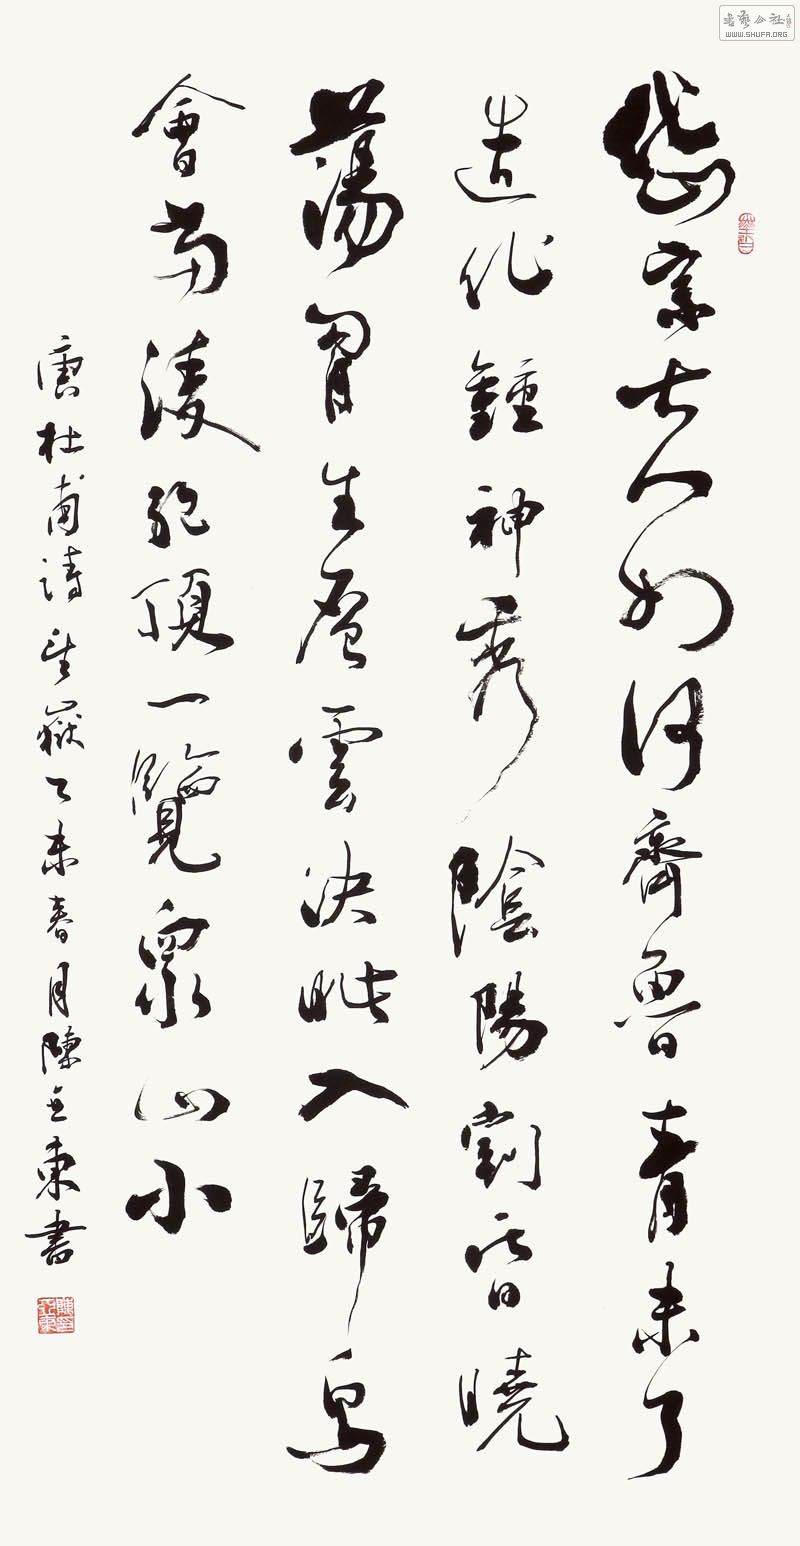 岱宗夫如何齊魯青未了
造化鍾神秀陰陽割昏曉
蕩胷生層雲決眦入歸鳥
會當淩絶頂一覽衆山小
唐杜甫詩望嶽乙未春月陳亞東書
書藝公社
WWW.SHUFA.ORG